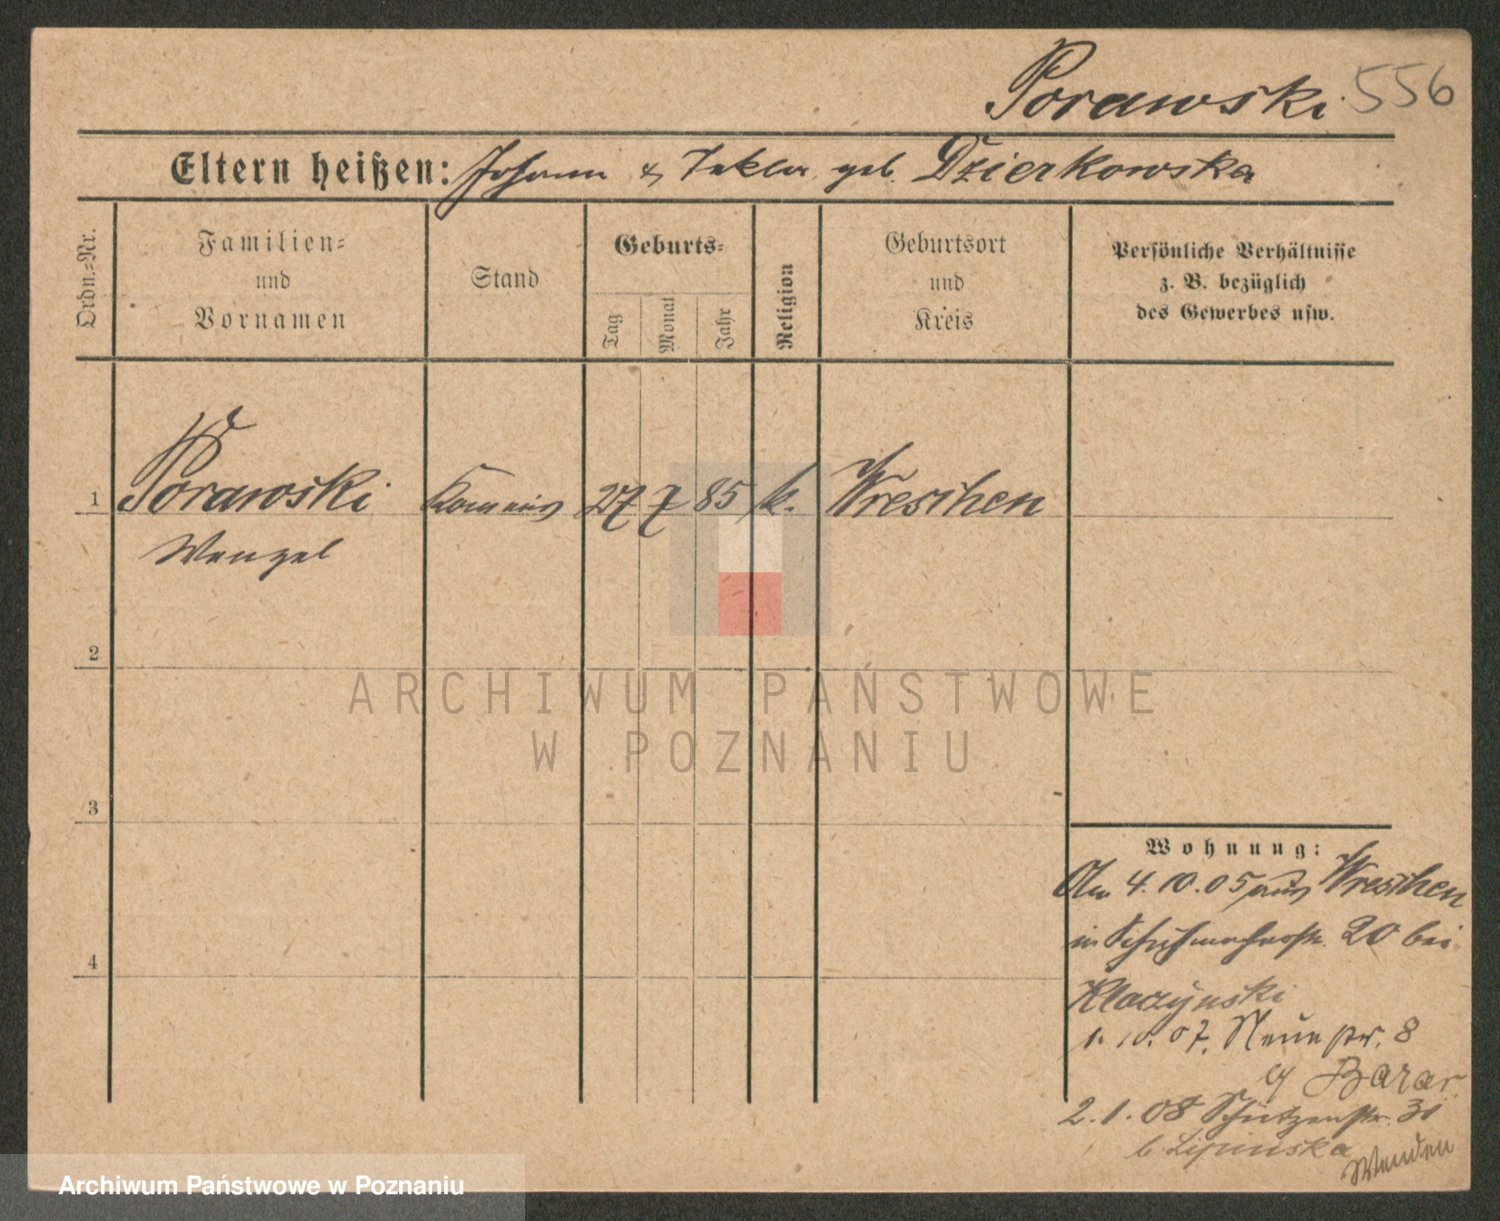 Porawski 556
Eltern heißen: Johann & Tekla geb. Dzierkowska
Ordn.=Nr.
Familien=
und
Vornamen
Stand
Geburts=
Tag
Monat
Jahr
Religion
Geburtsort
und
Kreis
Persönliche Verhältnisse
z. B. bezüglich
des Gewerbes usw.
1 Porawski Kommis 27 7 85 k. Wreschen
Wenzel
2
3
4
ARCHIWUM PAŃSTWOWE
W POZNANIU
Wohnung:
Am 4.10.05 aus Wreschen
in Schuhmacherstr. 20 bei
Kloczynski
1.10.07. Neue str. 8
Bazar
2.1.08 Schützenstr. 31
b. Lipinska
Wenden
Archiwum Państwowe w Poznaniu